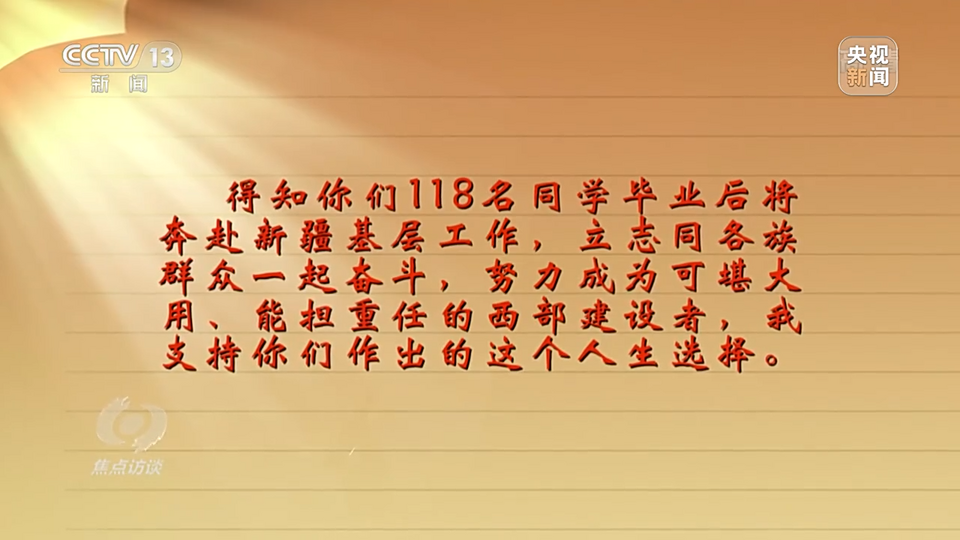 CCTV 13
新闻
央视
新闻
得知你们118名同学毕业后将
奔赴新疆基层工作，立志同各族
群众一起奋斗，努力成为可堪大
用、能担重任的西部建设者，我
支持你们作出的这个人生选择。
焦点访谈